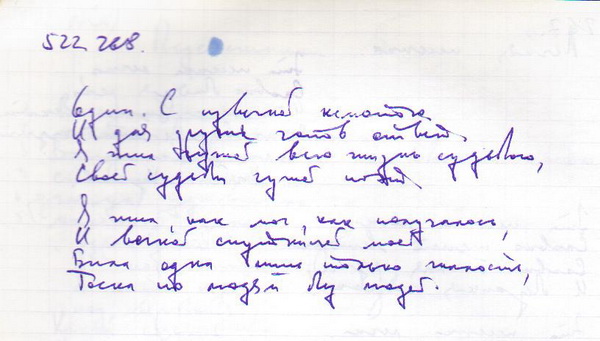 522 268.
Один. С извечной немотою
И для других готов ответ.
Я жил чужой всего жизнь судьбою,
Своей судьбы чужой поэт.
Я жил, как мог, как получалось,
И вечной спутницей моей
Была одна лишь только жалость,
Тоска по людям без людей.